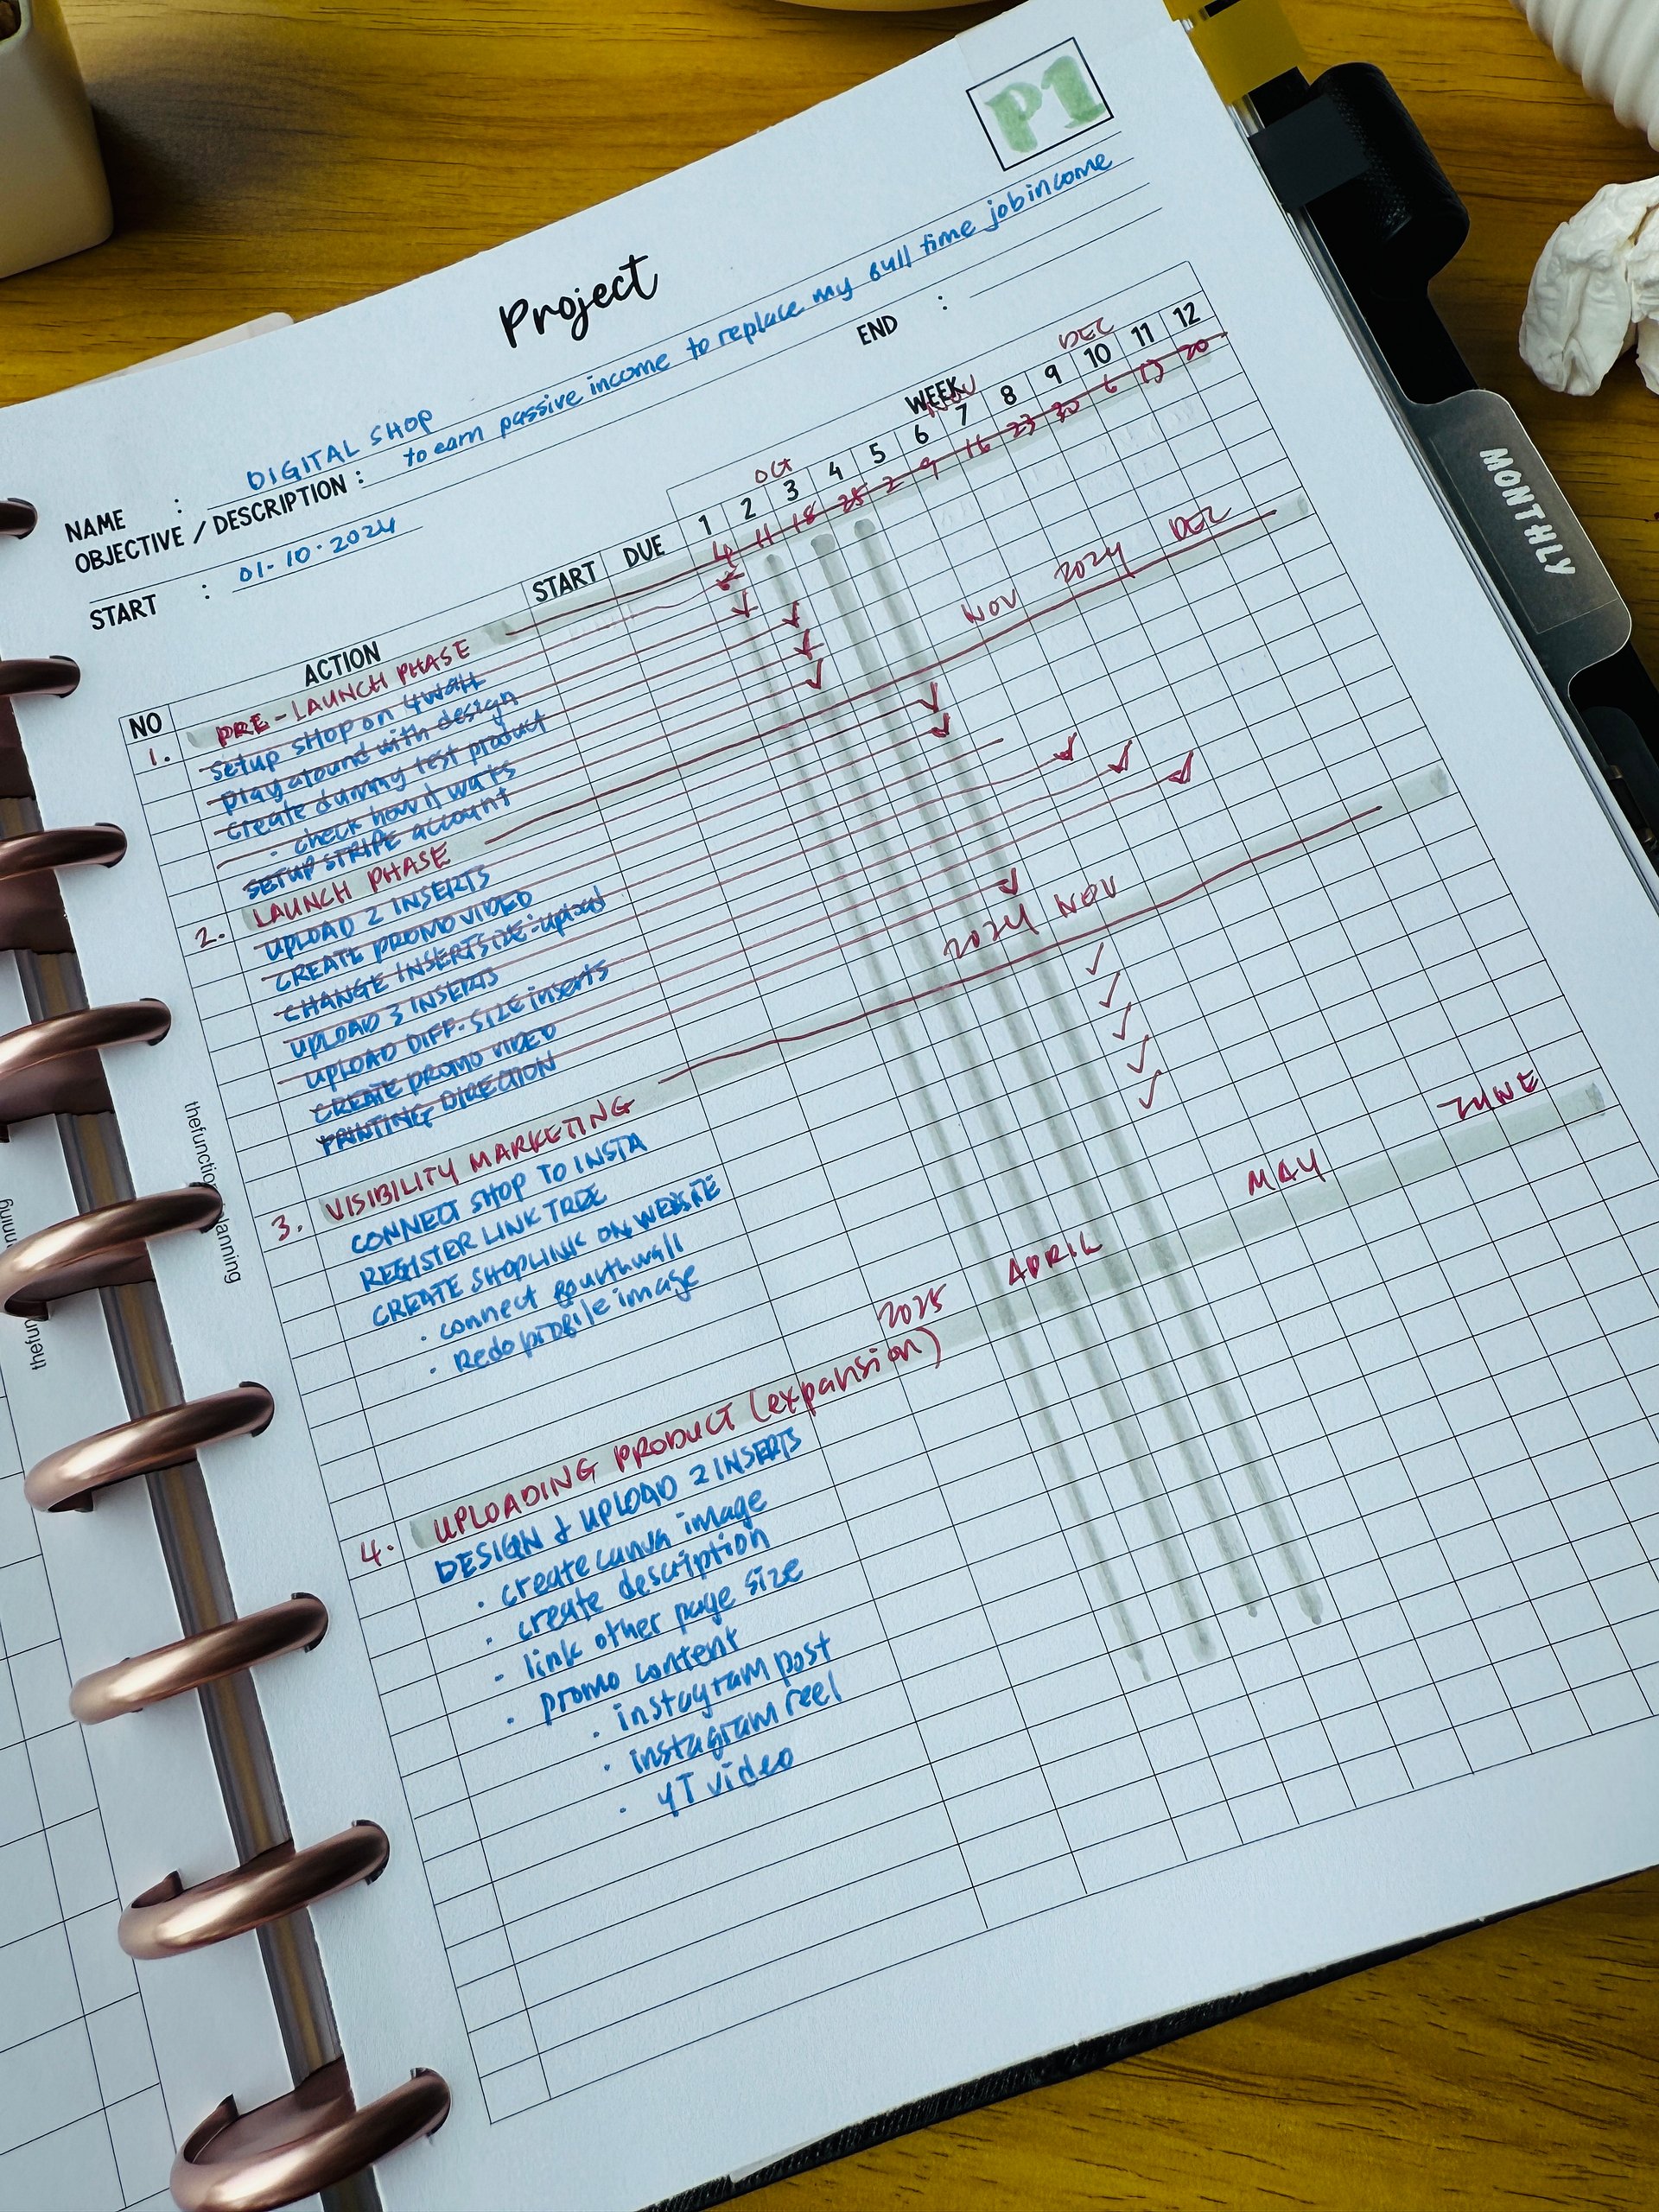 P1
Project
NAME : DIGITAL SHOP
OBJECTIVE / DESCRIPTION : to earn passive income to replace my full time job income
START : 01-10-2024 END :
WEEK
OCT NOV DEC
NO ACTION START DUE 1 2 3 4 5 6 7 8 9 10 11 12
4 11 18 25 2 9 16 23 30 6 13 20
1. PRE-LAUNCH PHASE
setup shop on 4wall
play around with design
create dummy test product
· check how it works
SETUP STRIPE account
2. LAUNCH PHASE NOV 2024 DEC
UPLOAD 2 INSERTS
CREATE PROMO VIDEO
CHANGE INSERT SIZE-upload
UPLOAD 3 INSERTS
UPLOAD DIFF. SIZE inserts
CREATE PROMO VIDEO
PRINTING DIRECTION
3. VISIBILITY MARKETING 2024 NOV
CONNECT SHOP TO INSTA
REGISTER LINK TREE
CREATE SHOPLINK ON WEBSITE
· connect fourthwall
· Redo profile image
4. UPLOADING PRODUCT (expansion) 2025 APRIL MAY JUNE
DESIGN & UPLOAD 2 INSERTS
· create canva image
· create description
· link other page size
· promo content
· instagram post
· instagram reel
· YT video
MONTHLY